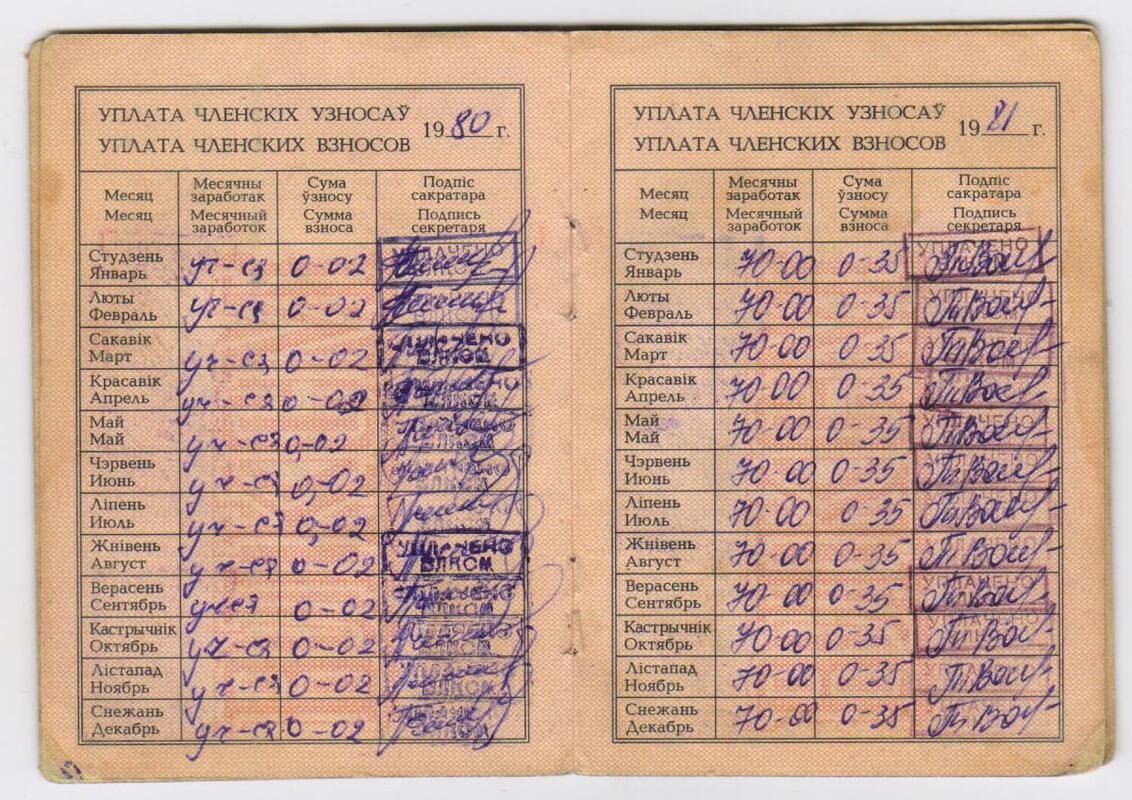 УПЛАТА ЧЛЕНСКІХ УЗНОСАЎ
УПЛАТА ЧЛЕНСКИХ ВЗНОСОВ
1980 г.
Месяц
Месяц
Месячны заработак
Месячный заработок
Сума ўзносу
Сумма взноса
Подпіс сакратара
Подпись секретаря
Студзень
Январь
уч-ся 0-02 УПЛАЧЕНО
ВЛКСМ
Люты
Февраль
уч-ся 0-02
Сакавік
Март
уч-ся 0-02 УПЛАЧЕНО
ВЛКСМ
Красавік
Апрель
уч-ся 0-02 УПЛАЧЕНО
ВЛКСМ
Май
Май
уч-ся 0,-02
ВЛКСМ
Чэрвень
Июнь
уч-ся 0,-02
Ліпень
Июль
уч-ся 0,-02
Жнівень
Август
уч-ся 0-02 УПЛАЧЕНО
ВЛКСМ
Верасень
Сентябрь
уч-ся 0-02 УПЛАЧЕНО
ВЛКСМ
Кастрычнік
Октябрь
уч-ся 0-02 УПЛАЧЕНО
ВЛКСМ
Лістапад
Ноябрь
уч-ся 0-02
ВЛКСМ
Снежань
Декабрь
уч-ся 0-02
УПЛАТА ЧЛЕНСКІХ УЗНОСАЎ
УПЛАТА ЧЛЕНСКИХ ВЗНОСОВ
1981 г.
Месяц
Месяц
Месячны заработак
Месячный заработок
Сума ўзносу
Сумма взноса
Подпіс сакратара
Подпись секретаря
Студзень
Январь
70-00 0-35 УПЛАЧЕНО
Люты
Февраль
70-00 0-35
Сакавік
Март
70-00 0-35
Красавік
Апрель
70-00 0-35
Май
Май
70-00 0-35 УПЛАЧЕНО
Чэрвень
Июнь
70-00 0-35
Ліпень
Июль
70-00 0-35
Жнівень
Август
70-00 0-35
Верасень
Сентябрь
70-00 0-35 УПЛАЧЕНО
Кастрычнік
Октябрь
70-00 0-35 УПЛАЧЕНО
Лістапад
Ноябрь
70-00 0-35
Снежань
Декабрь
70-00 0-35